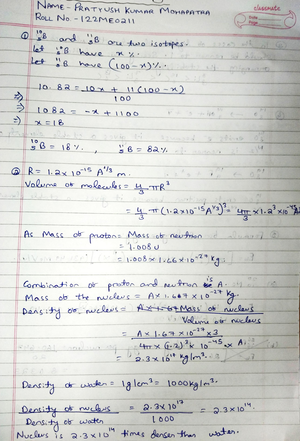 NAME - PRATYUSH KUMAR MOHAPATRA
ROLL NO - 122ME0211
classmate
Date
Page
① ¹⁰₅B and ¹¹₅B are two isotopes.
Let ¹⁰₅B have x %.
Let ¹¹₅B have (100-x)%.
10.82 = 10x + 11(100-x)
100
⇒ 1082 = -x + 1100
⇒ x = 18
¹⁰₅B = 18%, ¹¹₅B = 82%
② R = 1.2×10⁻¹⁵ A^1/3 m.
Volume of molecules = 4/3 πR³
= 4/3 π (1.2×10⁻¹⁵ A^1/3)³ = 4π/3 × 1.2³ × 10⁻⁴⁵ A
As Mass of proton = Mass of neutron
= 1.008 u
= 1.008 × 1.66 × 10⁻²⁷ kg
Combination of proton and neutron is A.
Mass of the nucleus = A × 1.67 × 10⁻²⁷ kg
Density of nucleus = Mass of nucleus
Volume of nucleus
= A × 1.67 × 10⁻²⁷ × 3
4π × (1.2)³ × 10⁻⁴⁵ × A
= 2.3 × 10¹⁷ kg/m³.
Density of water = 1g/cm³ = 1000 kg/m³.
Density of nucleus = 2.3 × 10¹⁷ = 2.3 × 10¹⁴
Density of water 1000
Nucleus is 2.3 × 10¹⁴ times denser than water.